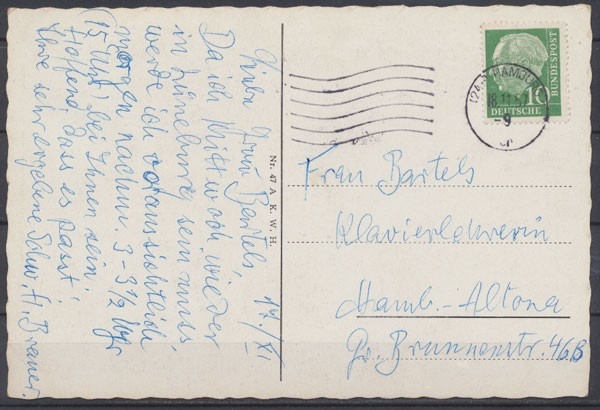 17/XI
Liebe Frau Bartels,
Da ich Mittwoch wieder
in Lüneburg sein muss,
werde ich voraussichtlich
morgen nachm. 3 - 3½ Uhr
(15 Uhr) bei Ihnen sein.
Hoffend, dass es passt!
Ihre sehr ergebene Schw. H. Brauer.
Nr. 47 A. K. W. H.
DEUTSCHE BUNDESPOST
10
HAMBURG
-9
Frau Bartels
Klavierlehrerin
Hamb.-Altona
Gr. Brunnenstr. 46B